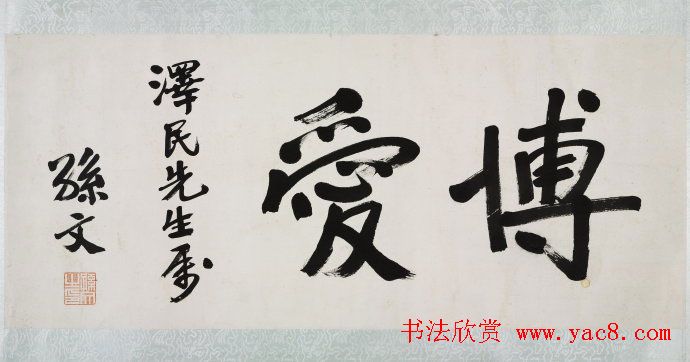 博愛
澤民先生屬
孫文
书法欣赏 www.yac8.com